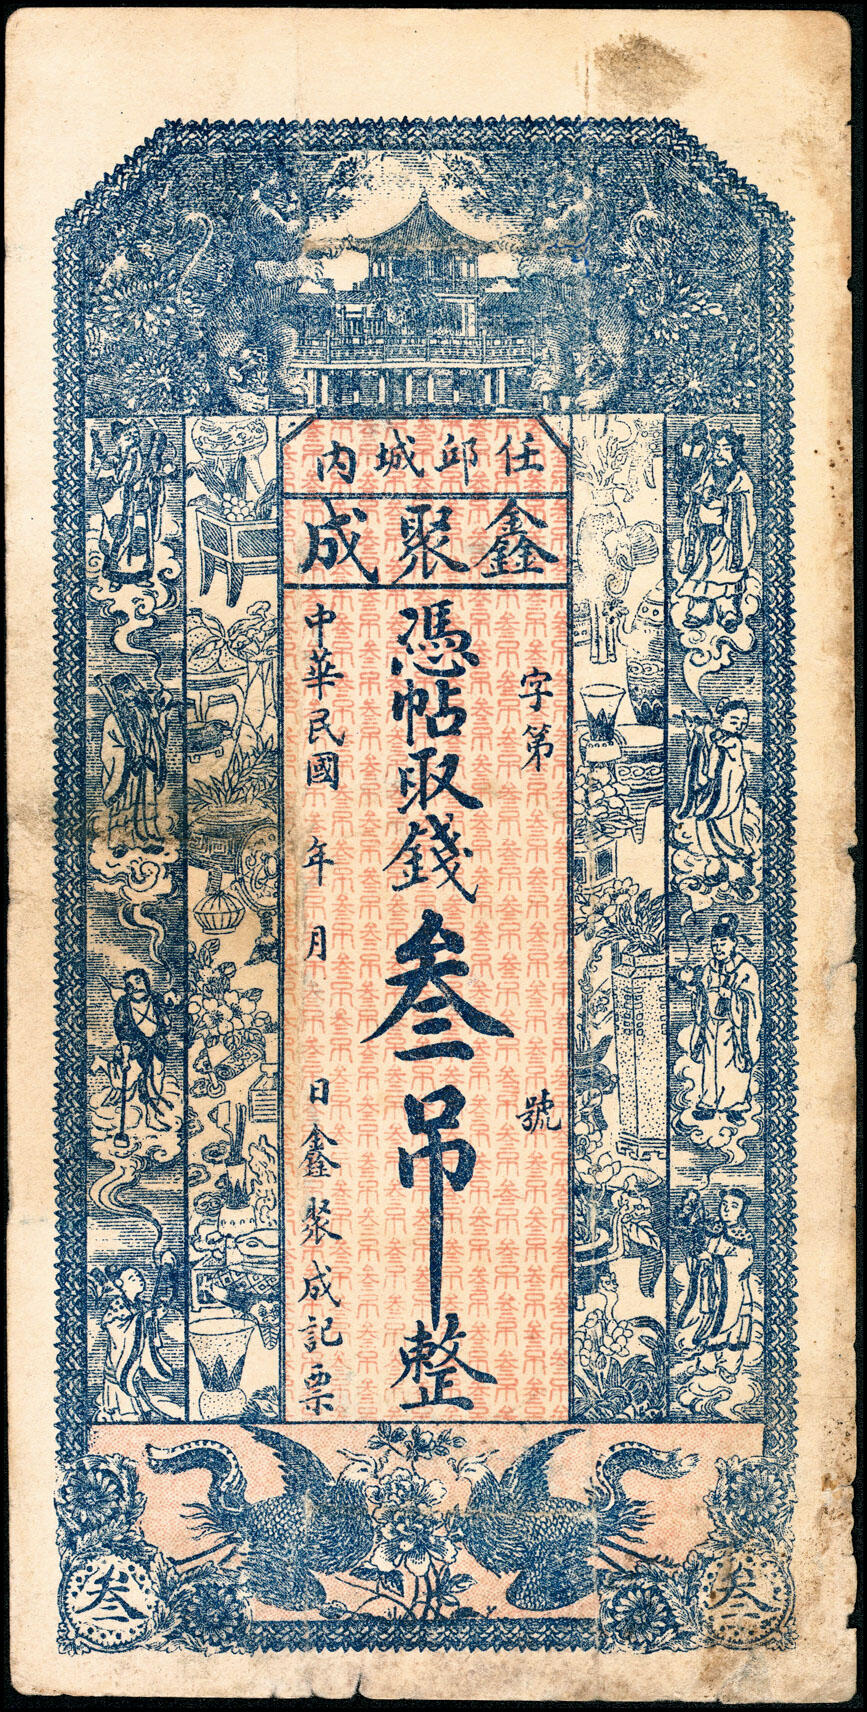 任邱城内
鑫聚成
字第 號
憑帖取錢叁吊整
中華民國 年 月 日鑫聚成記票
叁
叁